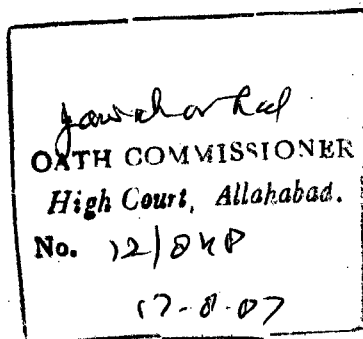 Jawahar Lal
OATH COMMISSIONER
High Court, Allahabad.
No. 12/848
17-8-07